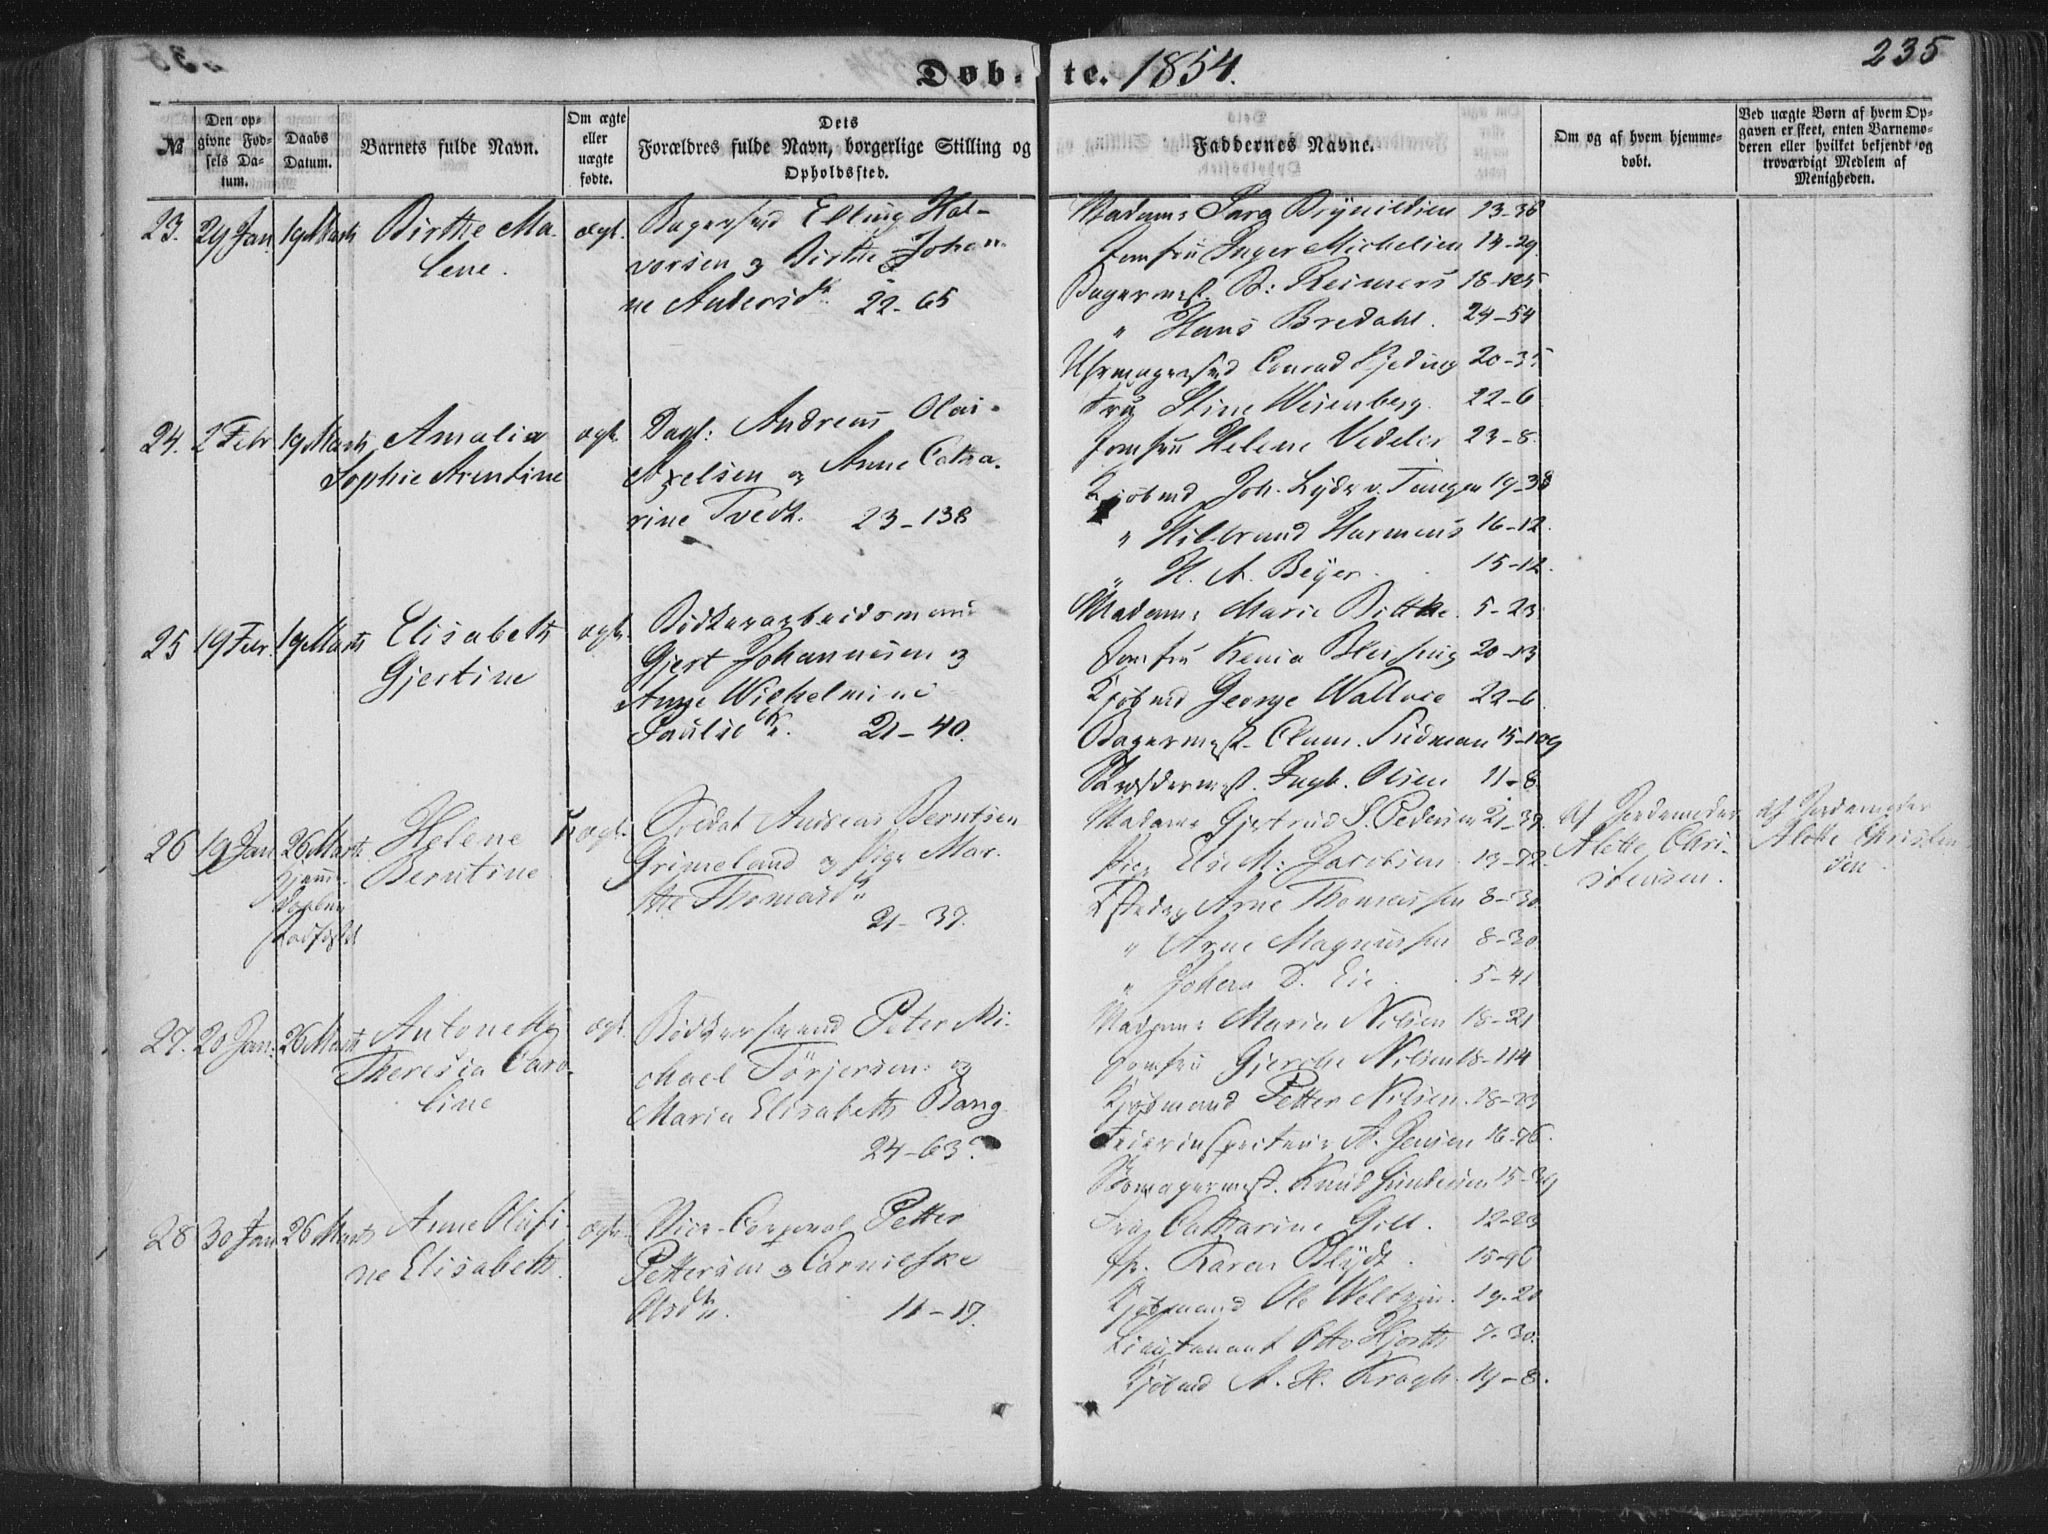 Døbte. 1854.
235
№
Den opgivne Fødsels Datum.
Daabs Datum.
Barnets fulde Navn.
Om ægte eller uægte fødte.
Dets Forældres fulde Navn, borgerlige Stilling og Opholdssted.
Faddernes Navne.
Om og af hvem hjemmedøbt.
Ved uægte Børn af hvem Opgaven er skeet, enten Barnemoderen eller hvilket bekjendt og troværdigt Medlem af Menigheden.
23. 29 Jan 19 Marts Birthe Ma-
lene.
ægt.
Bagersvd Elling Hal-
vorsen og Birthe Johan-
ne Andersdtr. 22-65
Madame Sara Brynildsen 13-36
Jomfru Inger Michelsen 14-29
Bagermest. B: Reimers 18-125
" Hans Bredahl. 24-54
Uhrmagersvd Conrad 20-35
24. 2 Febr 19 Marts Amalia
Sophie Arentine
ægt.
Dagl: Andreas Olai
Axelsen og Anne Catha-
rine Tvedt. 23-138
Fru Stine Wesenberg. 22-6
Jomfru Helene Vedeler 23-8
Kjøbmd Joh. Lyder v. Tangen 19-38
" Hilbrand Harmens 16-12
" H. A. Beyer 15-12.
25 19 Febr. 19 Marts Elisabeth
Gjertine
ægt.
Bødkerarbeidsmand
Gjert Johannesen og
Anne Wilhelmine
Paulsdtr. 21-40.
Madame Marie Bøttke. 5-23
Jomfru Kenia 20-13
Kjøbmd George Wallace 22-6
Bagermest. Clam. Sudman 15-109
Ingb. Olsen 11-8
26 19 Jan 26 Marts Helene
Berntine
uægt.
Soldat Andreas Berntsen
Grimeland og Pige Mar-
the Thomasdtr
21-37.
Madame Gjertrud S. Pedersen 21-37.
Pige Else M: Jacobsen 13-72
Arne Thomassen 8-30
" Arne Magnussen 8-30
" Johan D. Eie 5-41
Af Jordemoder
Alette Chri-
stensen.
Af Jordemoder
Alette Christen
sen
27. 20 Jan. 26 Marts Antonette
Theresia Caro-
line
ægt.
Bødkersvend Peter Mi-
chael Törjersen og
Maria Elisabeth Bang
24-63
Madame Maria Nilsen 18-21
Jomfru Gjerche Nilsen 18-114
Kjøbmand Petter Nilsen. 18-23
A. Jensen 16-76.
Skomagermest. Knud Gundersen 15-39
28 30 Jan 26 Marts Anne Olufi-
ne Elisabeth.
ægt.
Vice-Corporal Petter
Pettersen og Cornilske
Olsdtr. 11-17.
Fru Cathrine Gill. 12-23
Jfr. Karen Blydt. 15-46
Kjøbmand Ole Weltzin. 19-20
Lieutenant Otto Hjorth 7-30.
Kjøbmd A. H. Kragh. 19-8.